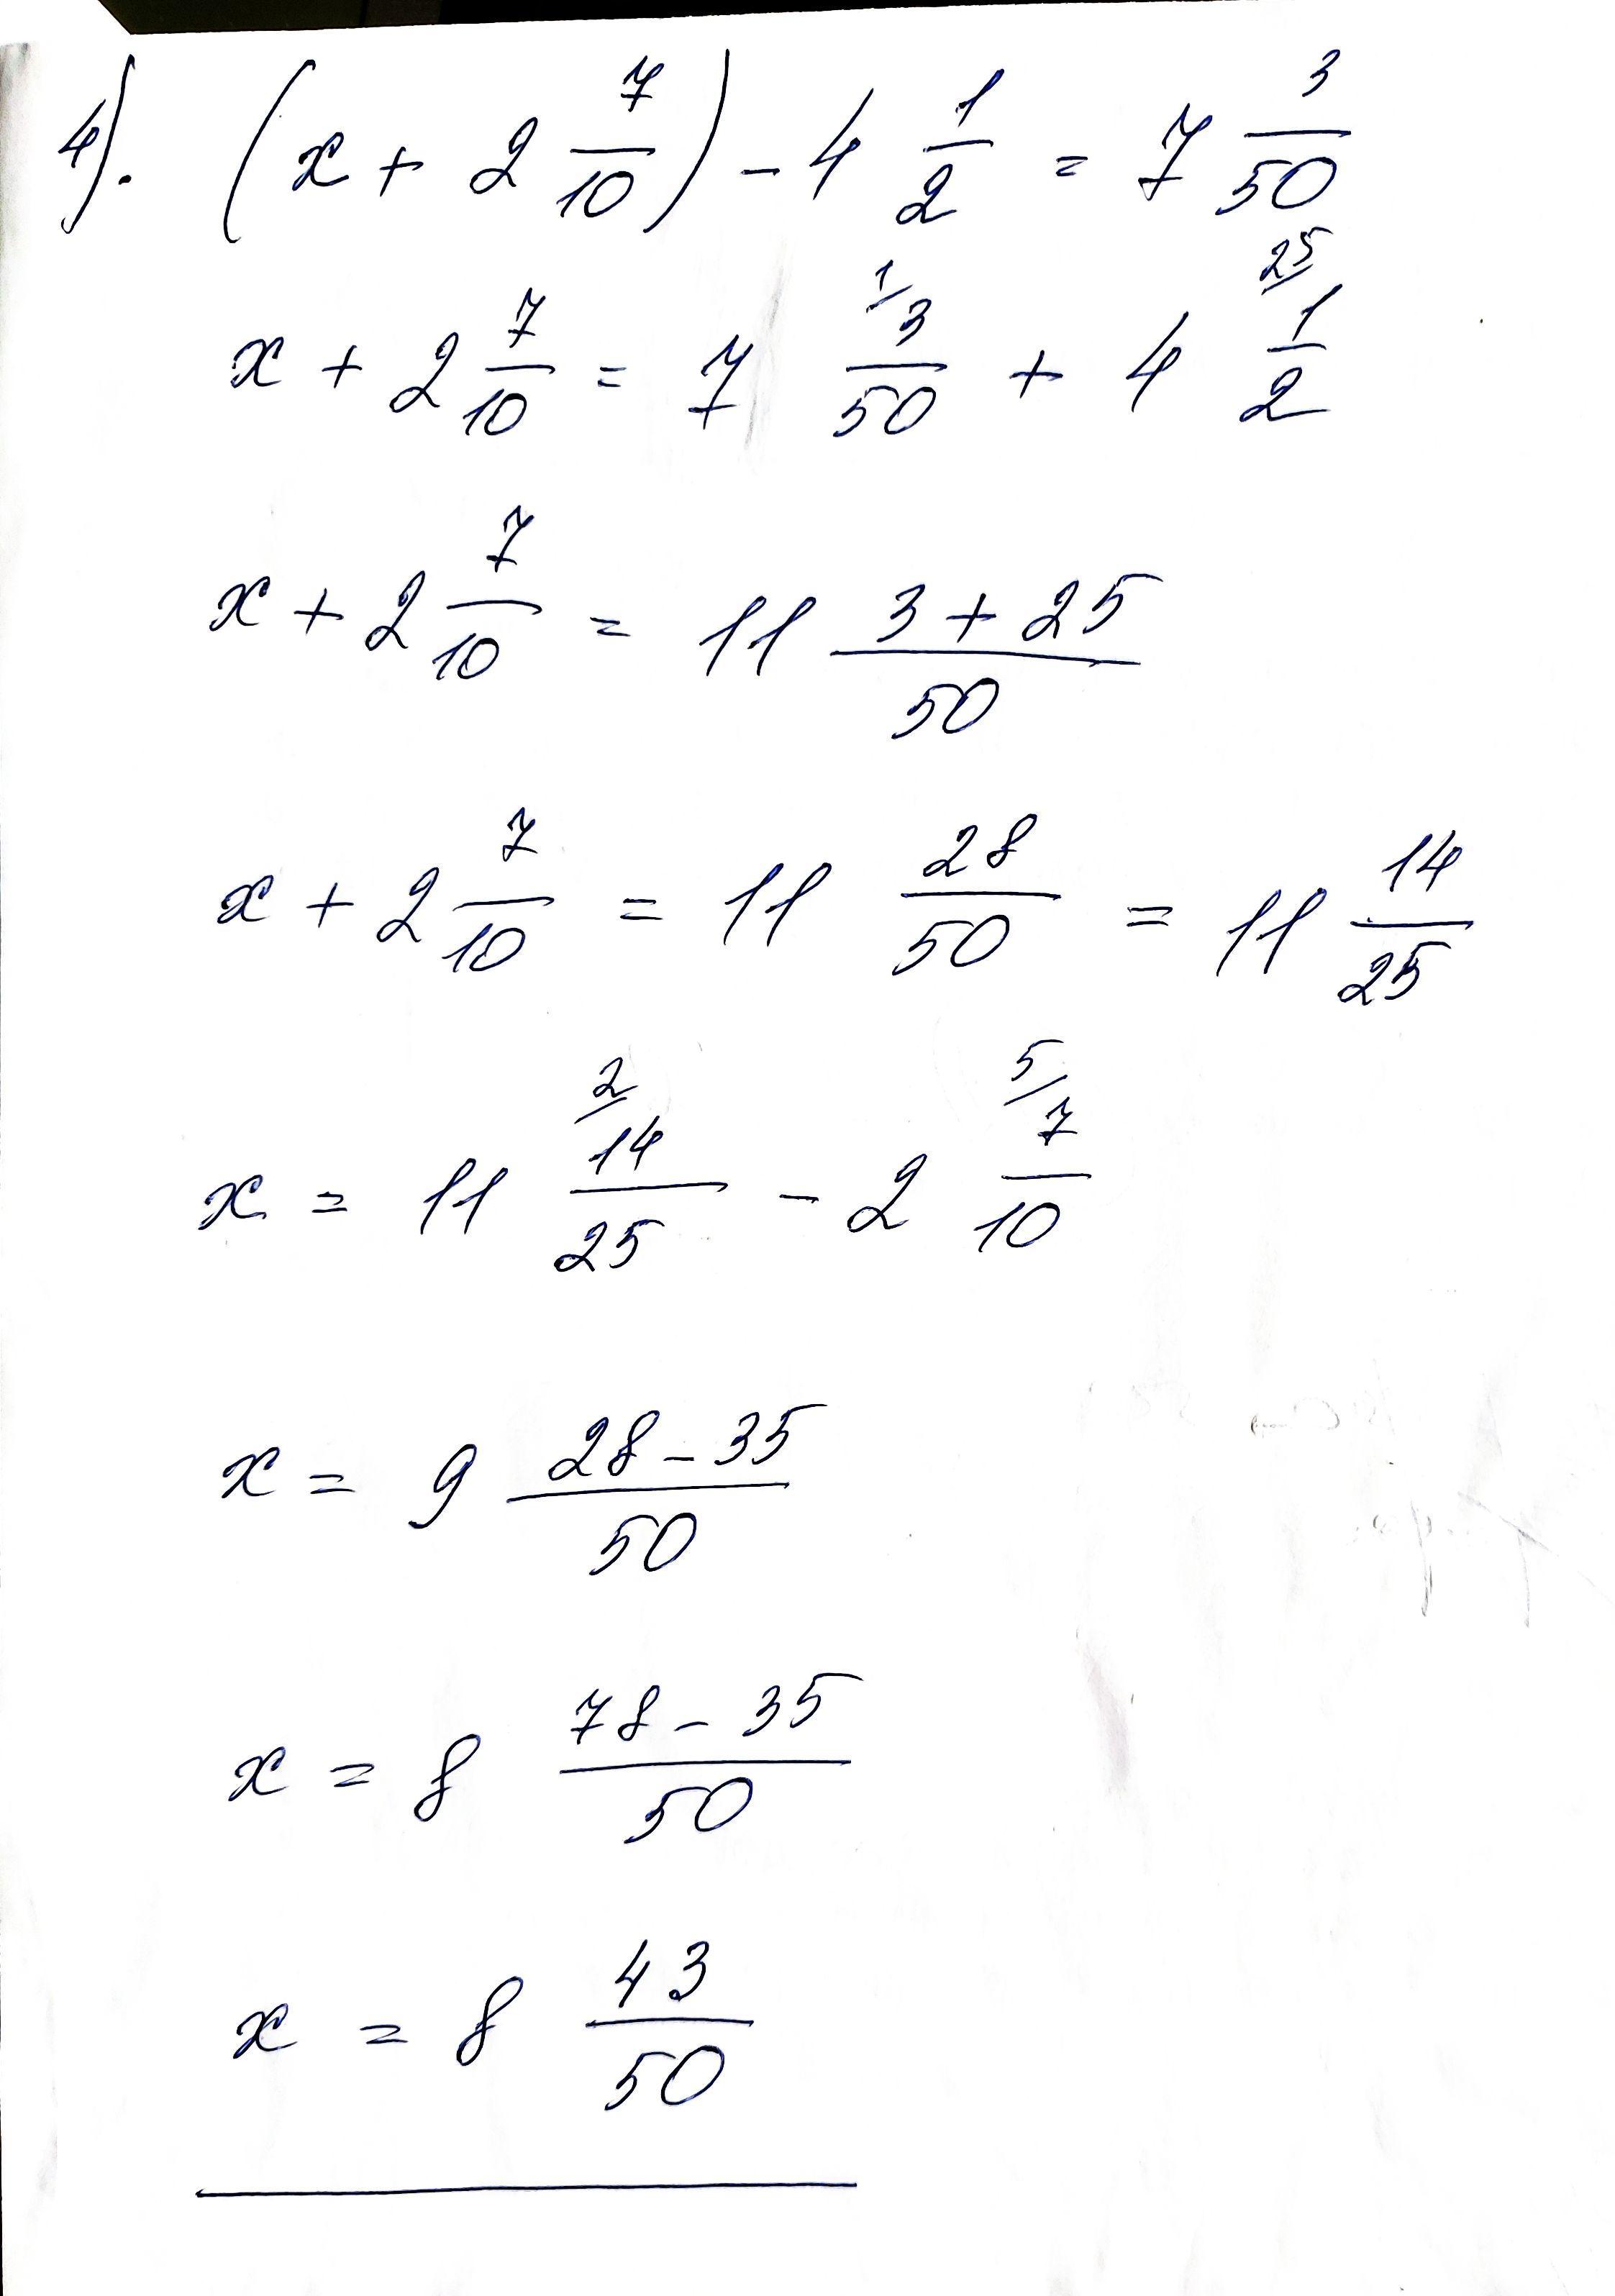 4). (x + 2 7/10) - 4 1/2 = 7 3/50
x + 2 7/10 = 7 1/ 3/50 + 4 25/ 1/2
x + 2 7/10 = 11 (3 + 25)/50
x + 2 7/10 = 11 28/50 = 11 14/25
x = 11 2/ 14/25 - 2 5/ 7/10
x = 9 (28 - 35)/50
x = 8 (78 - 35)/50
x = 8 43/50